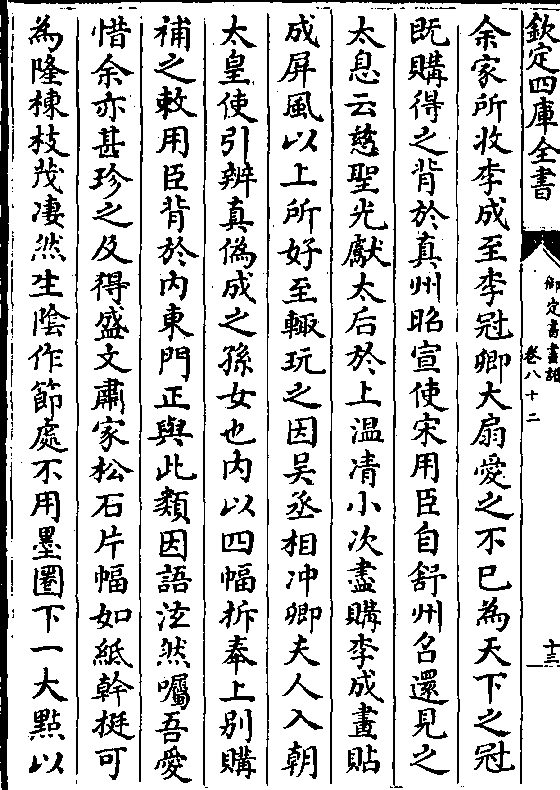 欽定四庫全書
御定書畫譜
卷八十二
十三
余家所收李成至李冠卿大扇愛之不已為天下之冠
既購得之背於真州昭宣使宋用臣自舒州召還見之
太息云慈聖光獻太后於上溫凊小次盡購李成畫貼
成屏風以上所好至輙玩之因吴丞相冲卿夫人入朝
太皇使引辨真偽成之孫女也内以四幅拆奉上别購
補之敕用臣背於内東門正與此類因語泣然囑吾愛
惜余亦甚珍之及得盛文肅家松石片幅如紙幹挺可
為隆棟枝茂凄然生陰作節處不用墨圏下一大點以